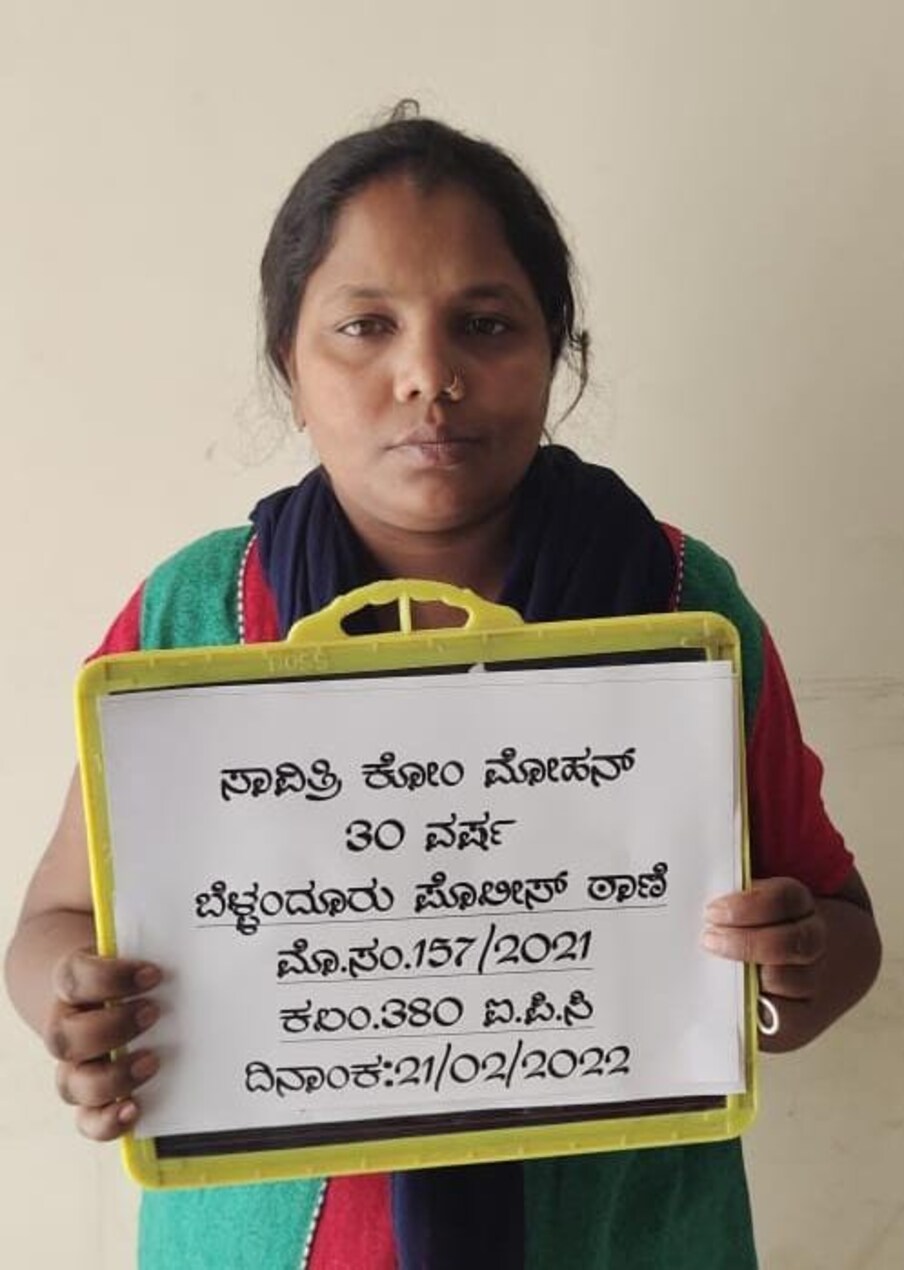 ಸಾವಿತ್ರಿ ಕೋಂ ಮೋಹನ್
30 ವರ್ಷ
ಬೆಳ್ಳಂದೂರು ಪೊಲೀಸ್ ಠಾಣೆ
ಮೊ.ಸಂ.157/2021
ಕಲಂ.380 ಐ.ಪಿ.ಸಿ
ದಿನಾಂಕ:21/02/2022